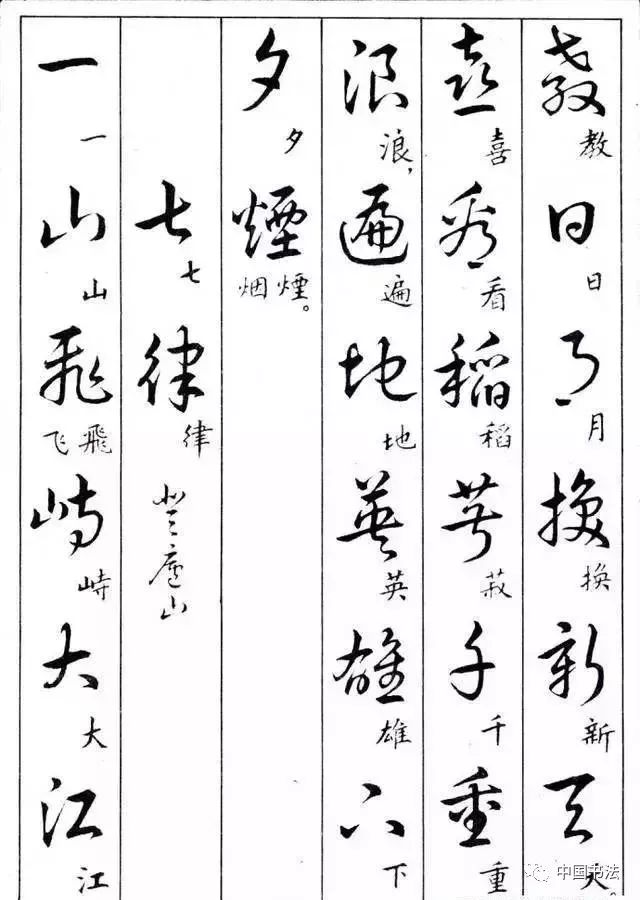 教日月換新天
教日月换新天。
喜看稻菽千重
喜看稻菽千重
浪遍地英雄下
浪，遍地英雄下
夕煙
夕煙。烟
七律
七律
登廬山
一山飛峙大江
一山飛飞峙大江
中国书法